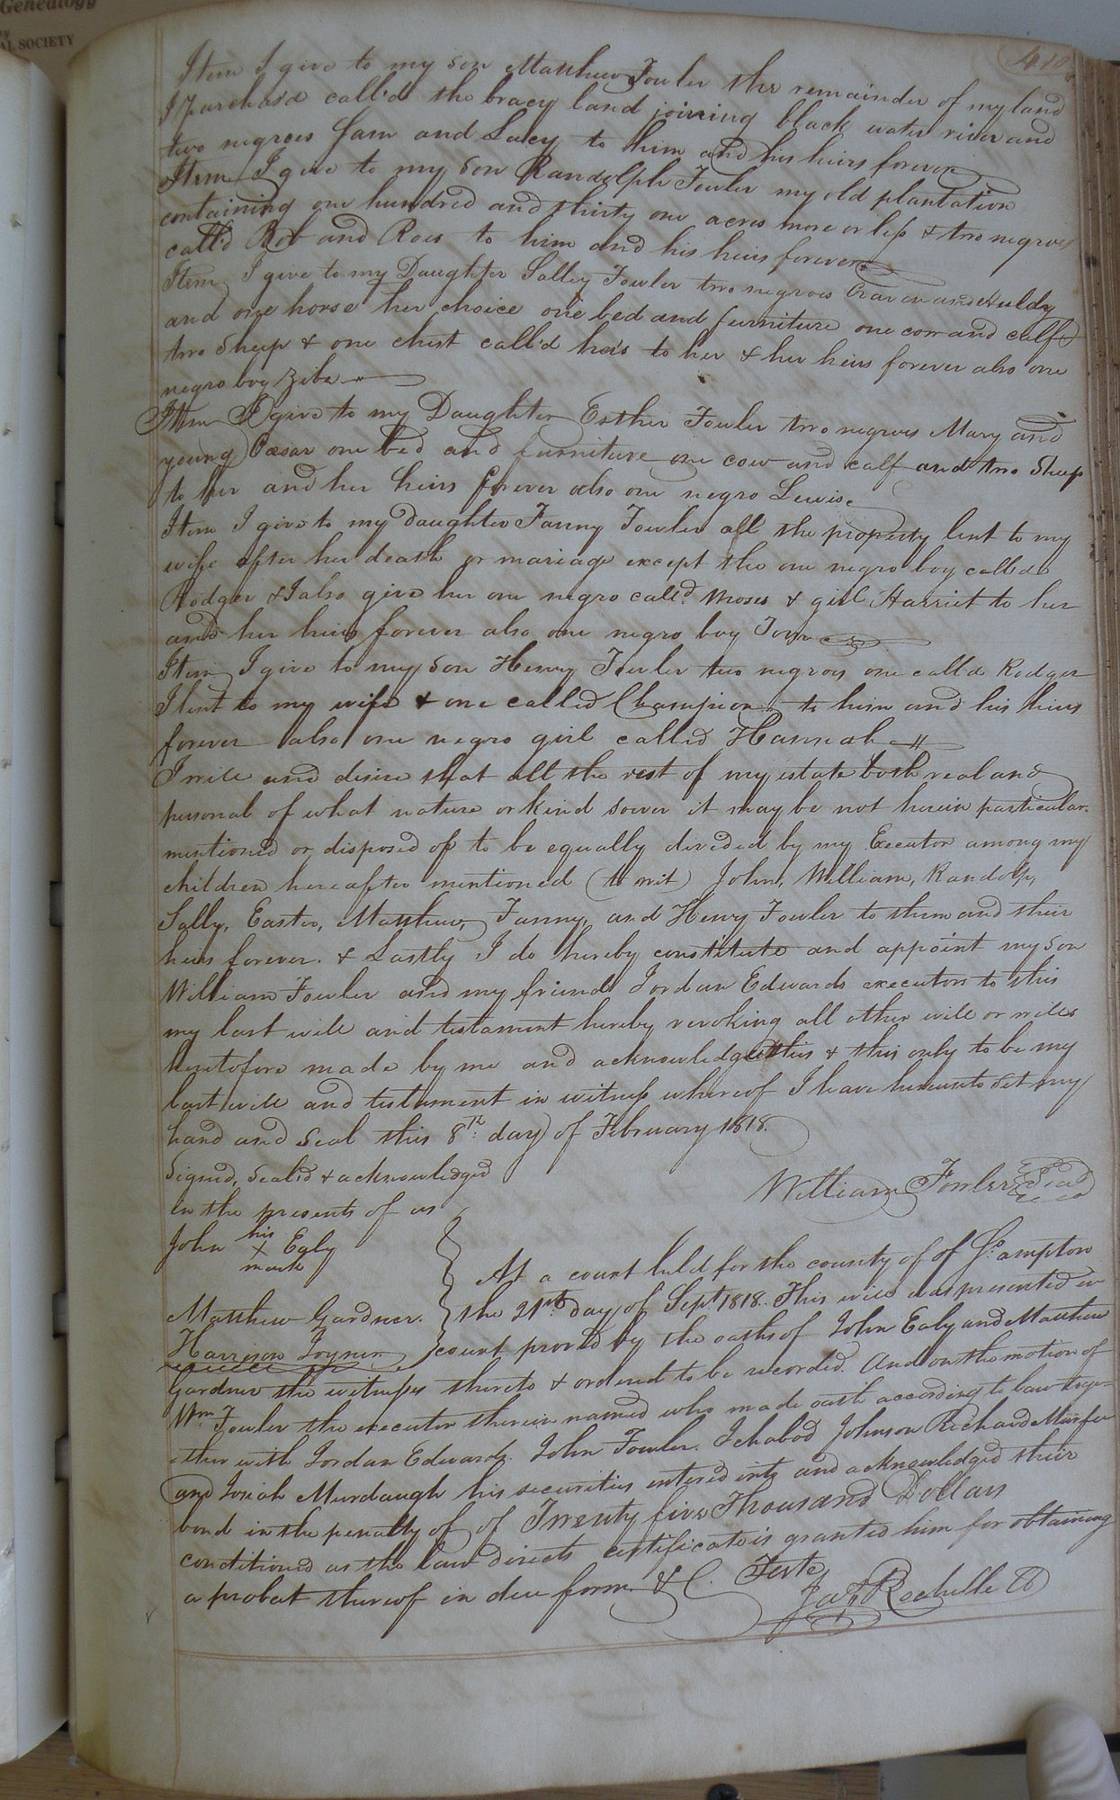 Genealogy
AL SOCIETY
Item I give to my son Matthew Fowler the remainder of my land
I Purchasd call'd the bracy land joining black water river and
two negroes Sam and Lucy to him and his heirs forever
Item I give to my son Randolph Fowler my old plantation
containing one hundred and thirty one acres more or less & two negroes
call'd Rob and Rose to him and his heirs forever
Item I give to my Daughter Salley Fowler two negroes and Huldy
and one horse her choice one bed and furniture one cow and calf
two Sheep & one chest call'd hers to her & her heirs forever also one
negro boy Zibe
Item I give to my Daughter Esther Fowler two negroes Mary and
young Cæsar one bed and furniture one cow and calf and two Sheep
to her and her heirs forever also one negro Lewis
Item I give to my daughter Fanny Fowler all the property lent to my
wife after her death or mariage except the one negro boy call'd
Rodger & I also give her one negro call'd Moses & girl Harriet to her
and her heirs forever also one negro boy Tom
Item I give to my son Henry Fowler two negroes one call'd Rodger
I lent to my wife & one called Champion to him and his heirs
forever also one negro girl called Hannah
I will and desire that all the rest of my estate both real and
personal of what nature or kind soever it may be not herein particular
mentioned or disposed of to be equally divided by my Executor among my
children hereafter mentioned (to wit) John, William, Randolp,
Sally, Easter, Matthew, Fanny, and Henry Fowler to them and their
heirs forever. & Lastly I do hereby constitute and appoint my son
William Fowler and my friend Jordan Edwards executors to this
my last will and testament hereby revoking all other will or wills
heretofore made by me and acknowledged this & this only to be my
last will and testament in witness whereof I have hereunto set my
hand and seal this 8th day of February 1818.
Signed, Seal'd & acknowledged
in the presents of us
William Fowler Seal
John his X mark Ealy
Matthew Gardner.
Harrison Joyner
At a court held for the county of of So. ampton
the 21st day of Sept 1818. This will was presented in
court proved by the oaths of John Ealy and Matthew
Gardner the witnesses thereto & ordered to be recorded. And on the motion of
Wm Fowler the executor therein named who made oath according to law toge-
ther with Jordan Edwards. John Fowler. Ichabod Johnson Richard
and Josiah Murdaugh his securities entered into and acknowledged their
bond in the penalty of of Twenty five Thousand Dollars
conditioned as the law directs certificate is granted him for obtaining
a probat thereof in due form &C. Teste
Jas Rochelle